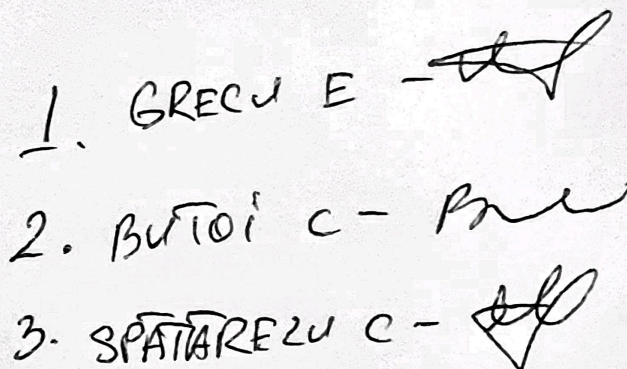 1. GRECU E -
2. BUTOI C -
3. SPĂTĂREZU C -